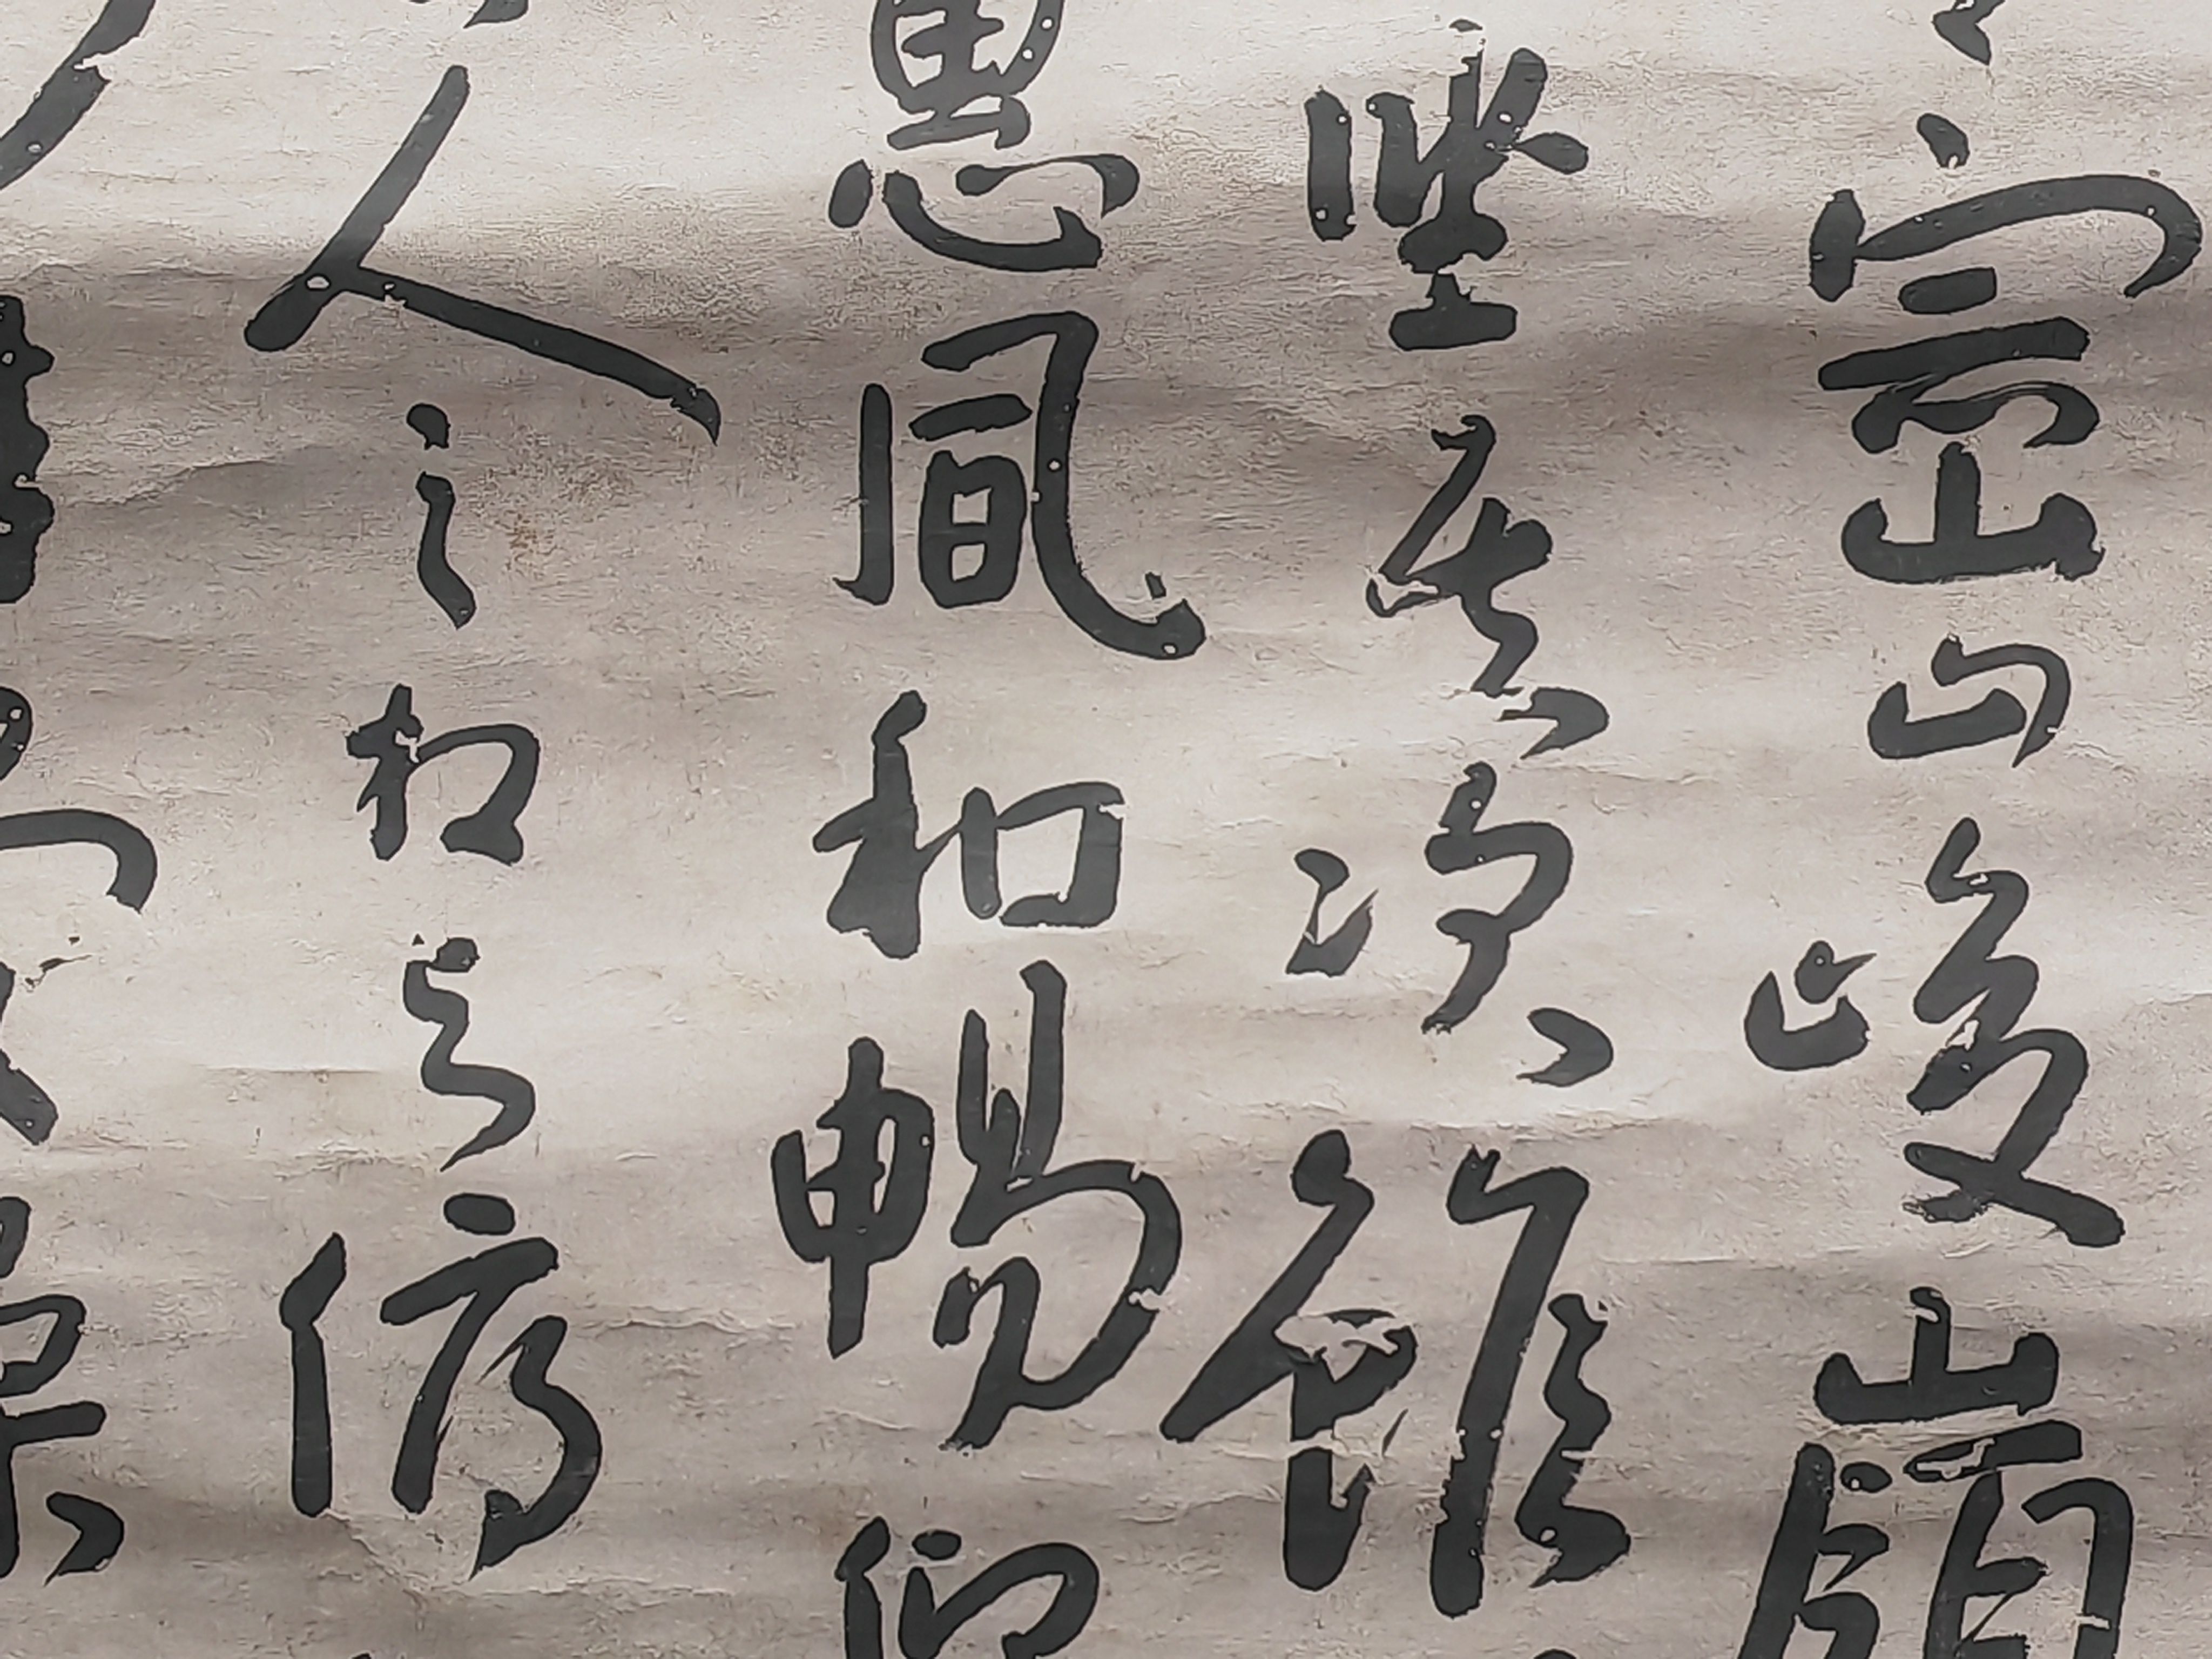 崇山峻嶺
坐其次雖
惠風和暢仰
人之相與俯